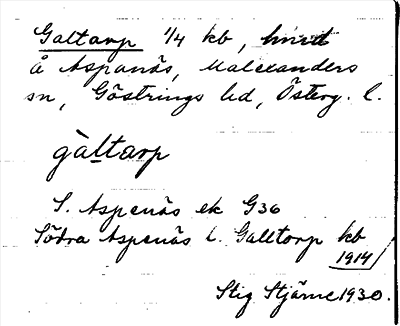 Galtarp 1/4 kb,
å Aspanäs, Malexanders
sn, Göstrings hd, Österg. l.
gàltarp
S. Aspenäs ek G36
Södra Aspenäs l. Galltorp kb
1914
Stig Stjärne 1930.